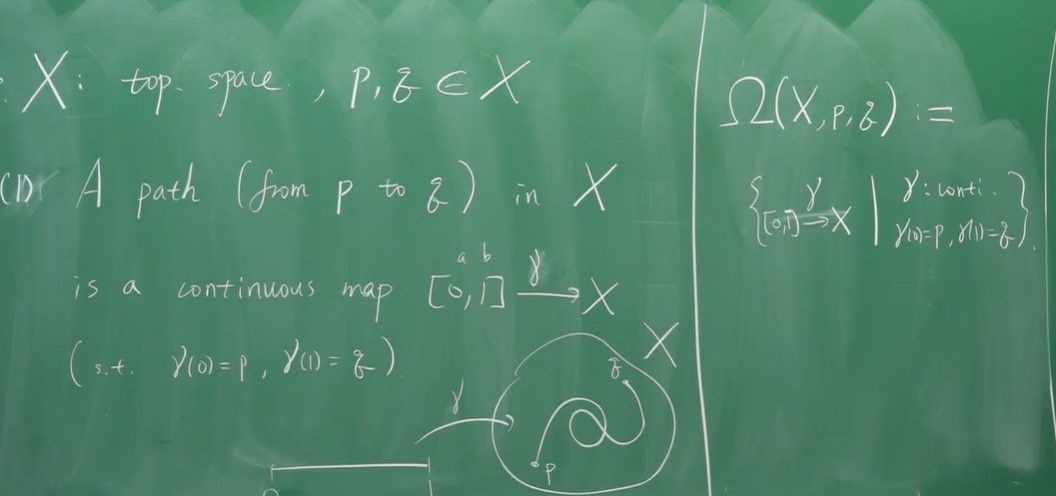 X: top. space. , p, q ∈ X
(1) A path (from p to q) in X
a b
is a continuous map [0,1] γ→ X
(s.t. γ(0)=p, γ(1)=q).
X
q
γ
p
0
Ω(X,p,q) :=
{[0,1] γ→ X | γ: conti. γ(0)=p, γ(1)=q}.